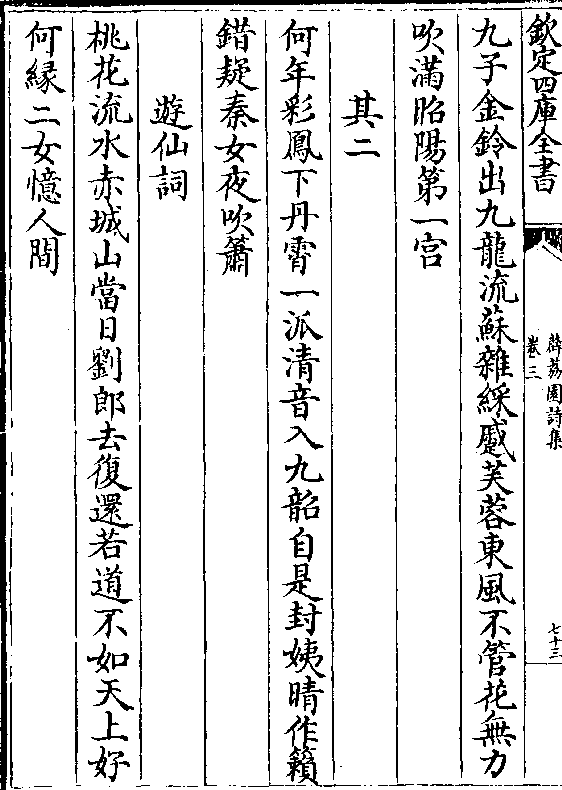 欽定四庫全書
薜荔園詩集
卷三
七十三
九子金鈴出九龍流蘇雜綵蹙芙蓉東風不管花無力
吹滿昭陽第一宫
其二
何年彩鳳下丹霄一派清音入九韶自是封姨晴作籟
錯疑秦女夜吹簫
遊仙詞
桃花流水赤城山當日劉郎去復還若道不如天上好
何緣二女憶人間